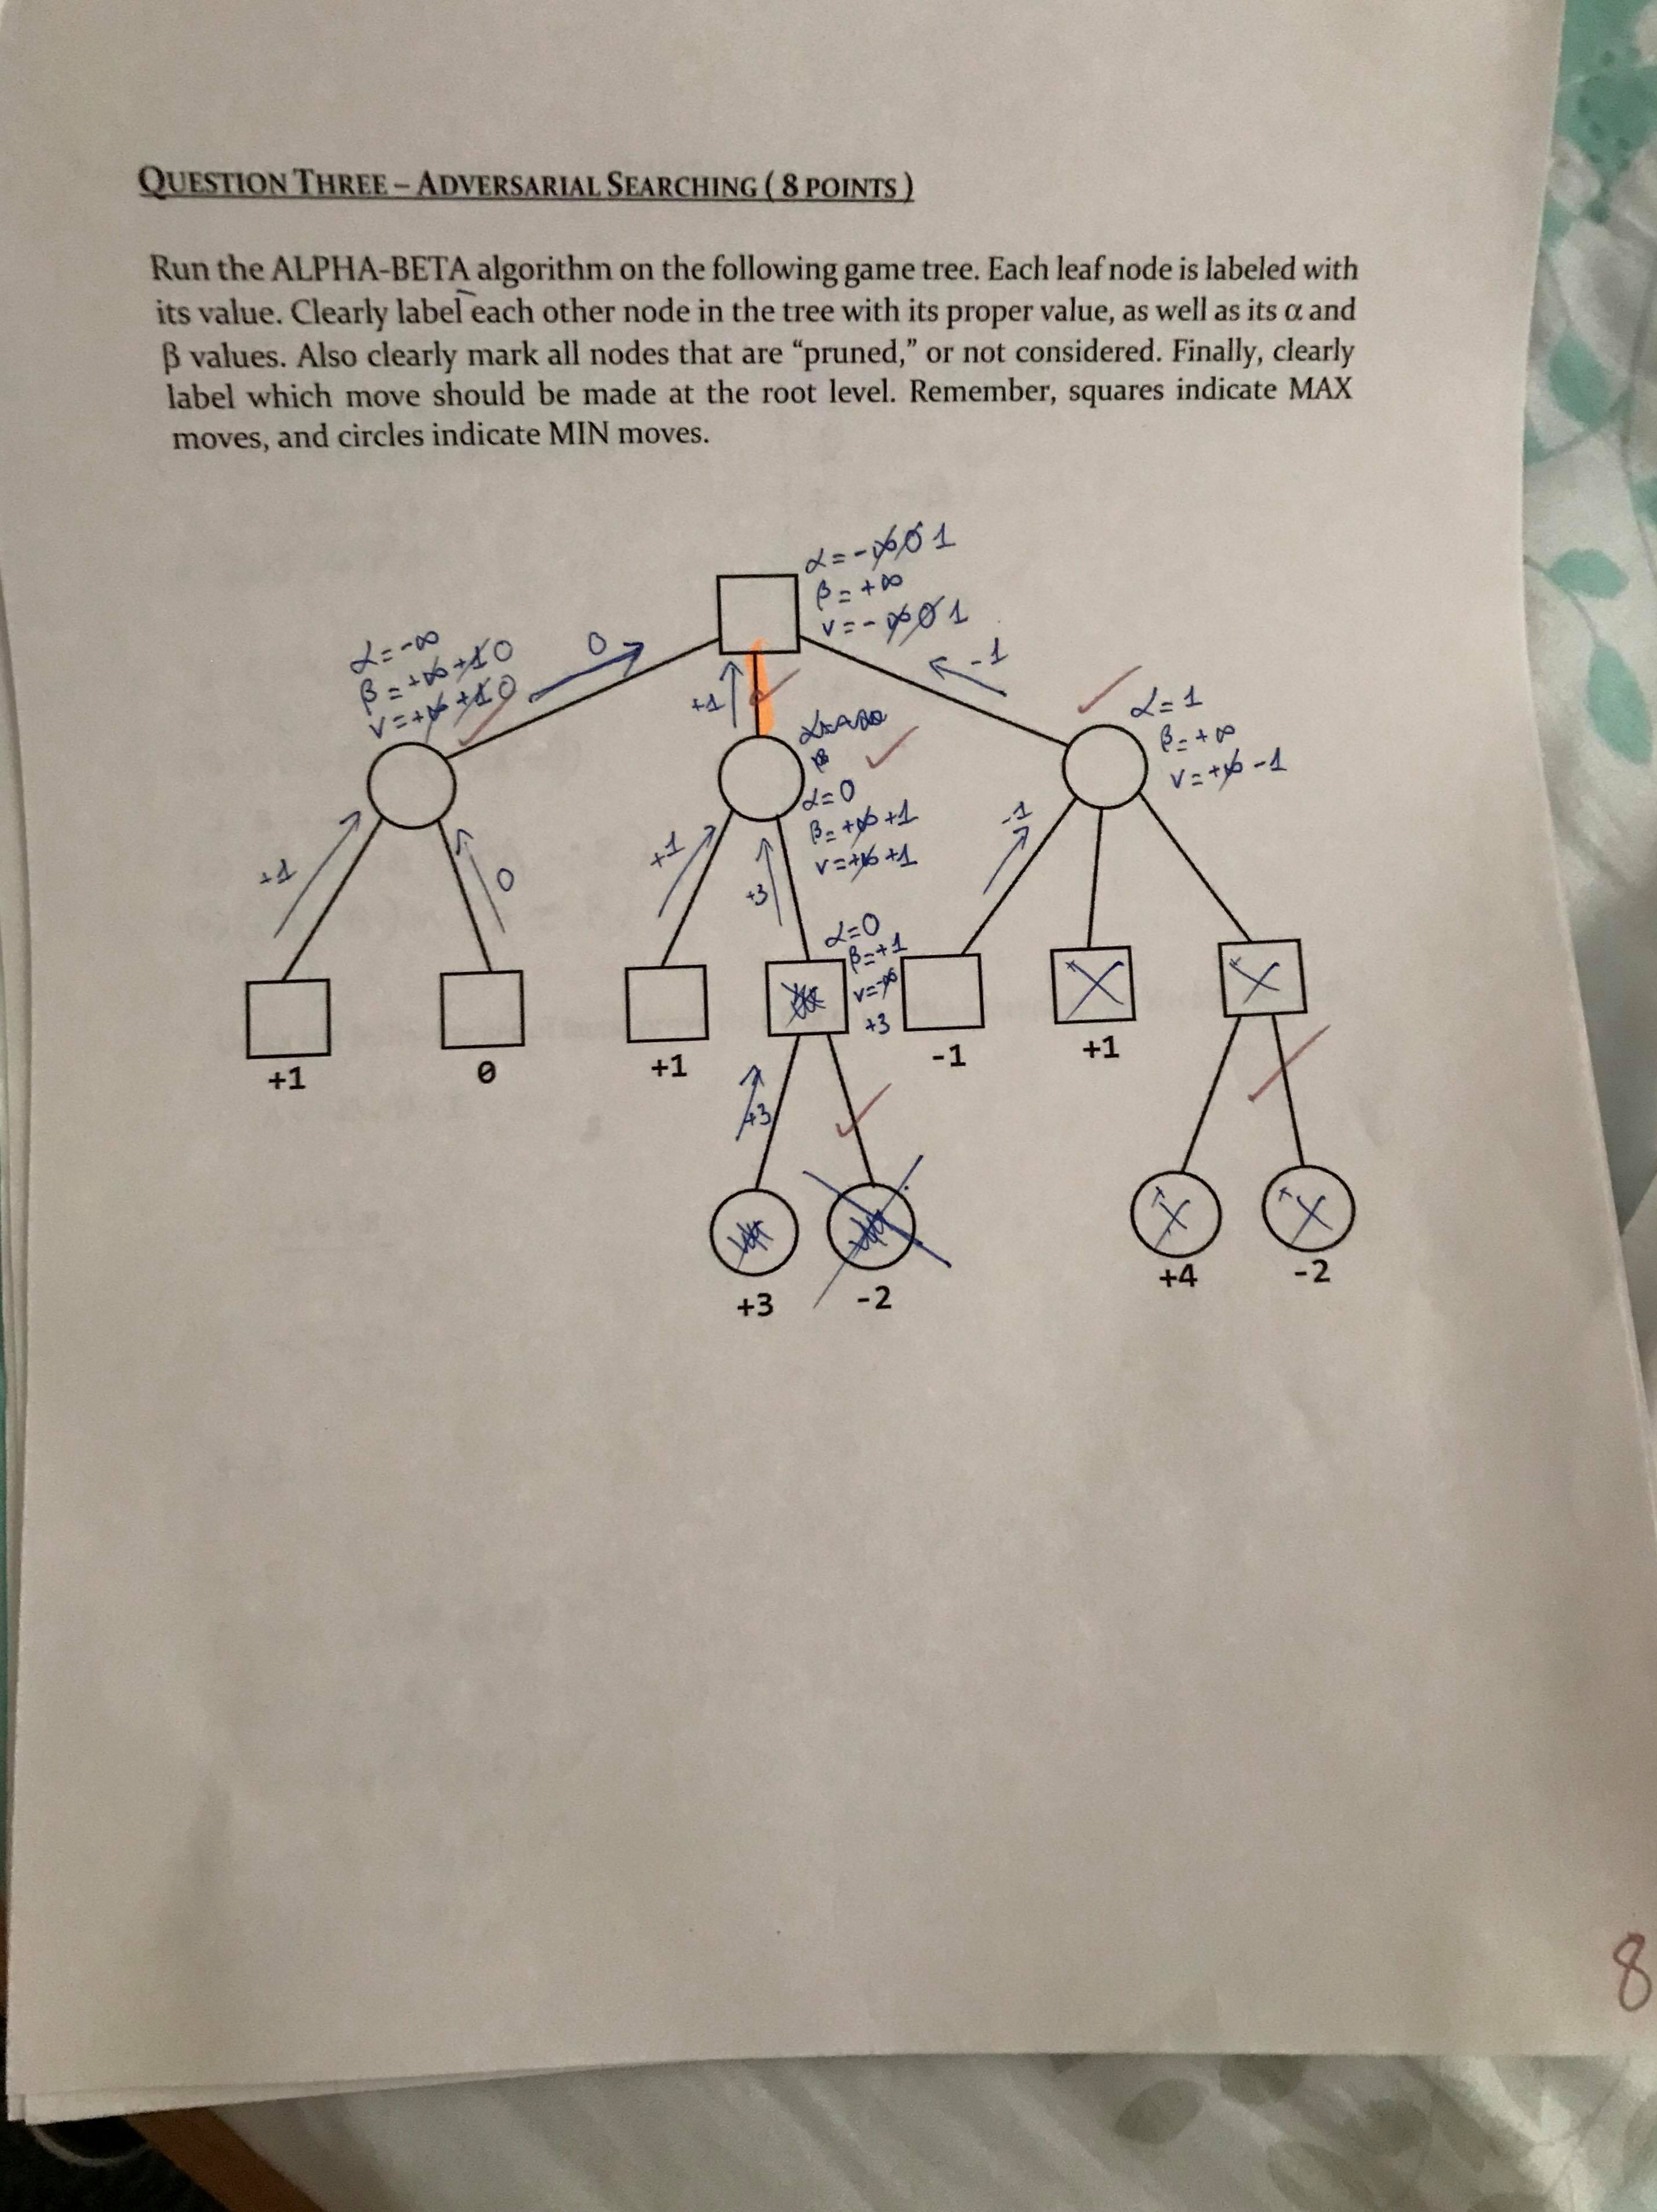 QUESTION THREE – ADVERSARIAL SEARCHING ( 8 POINTS )
Run the ALPHA-BETA algorithm on the following game tree. Each leaf node is labeled with
its value. Clearly label each other node in the tree with its proper value, as well as its α and
β values. Also clearly mark all nodes that are “pruned,” or not considered. Finally, clearly
label which move should be made at the root level. Remember, squares indicate MAX
moves, and circles indicate MIN moves.
α = -∞ 0 1
β = +∞
v = -∞ 0 1
α = -∞
β = +∞ +1 0
v = +∞ +1 0
0
+1
-1
α = 1
β = +∞
v = +∞ -1
α = 0
β = +∞ +1
v = +∞ +1
+1
0
+1
+3
-1
α = 0
β = +1
v = -∞
+3
+1
0
+1
-1
+1
+3
+3
-2
+4
-2
8